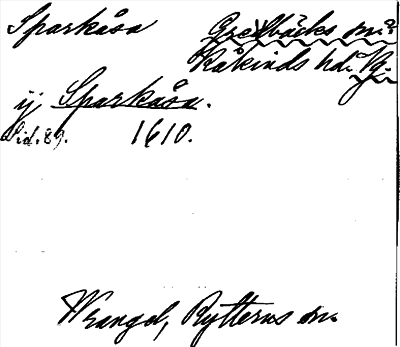 Sparkåsa Grevbäcks sn.
Kåkinds hd. Vg.
ij Sparkåsa.
Sid. 89. 1610.
Wrangel, Rytterns sn.